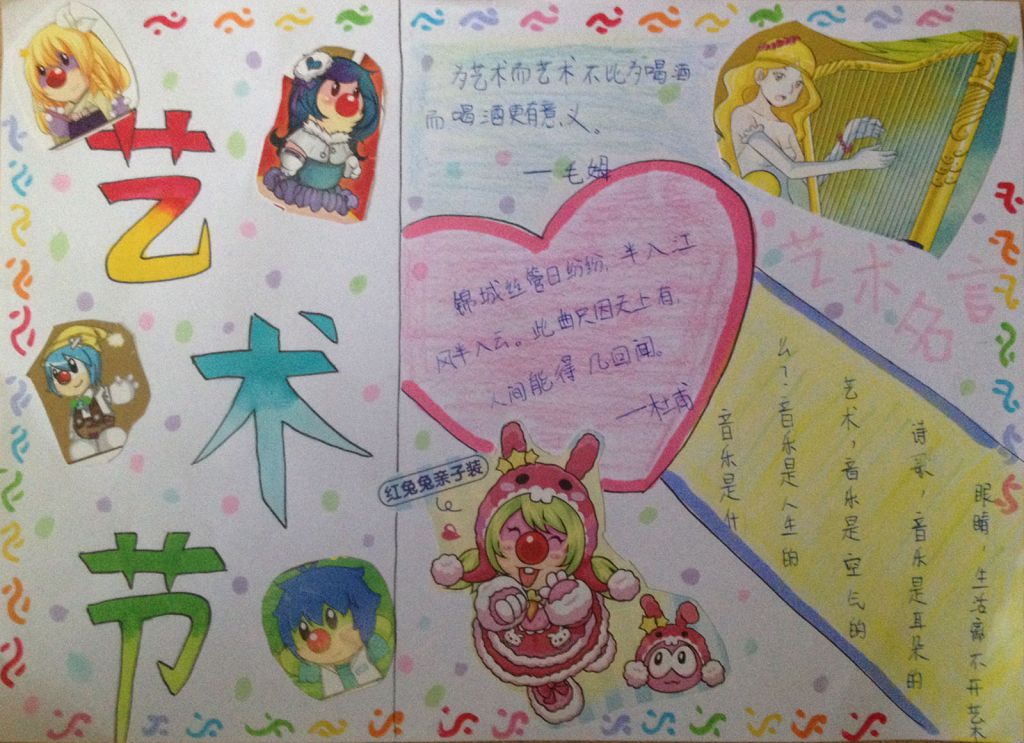 艺
术
节
为艺术而艺术不比为喝酒
而喝酒更有意义。
—毛姆
锦城丝管日纷纷,半入江
风半入云。此曲只因天上有,
人间能得几回闻。
—杜甫
红兔兔亲子装
艺术名言
音乐是什
么?音乐是人生的
艺术,音乐是空气的
诗歌,音乐是耳朵的
眼睛,生活离不开艺术